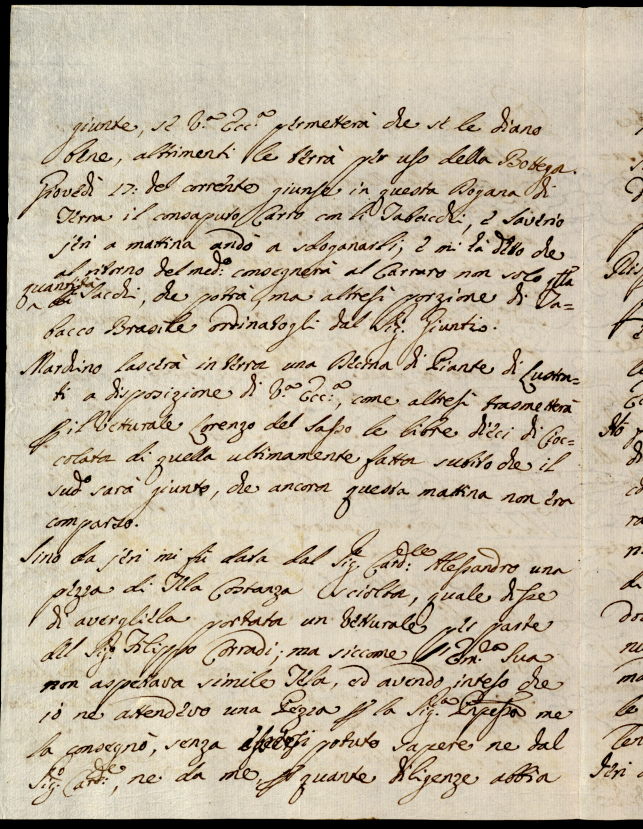 giunte, se V.ra Ecc.a permetterà che se le diano
bene, altrimenti le terrà per uso della Bottega.
Giovedì 17: del corrente giunse in questa Dogana di
Terra il consaputo Carro con li Tabacchi, e Saverio
jeri a mattina andò a sdoganarli; e mi hà detto che
al ritorno del med.o consegnerà al Carraro non solo
quantità
Sacchi, che potrà, ma altresì porzione di Ta=
bacco Brasile ordinatogli dal Sig.r Giuntio.
Mardino lascerà in terra una Decina di Piante di Lustra=
ti a disposizione di V.ra Ecc.a, come altresì trasmetterà
il Vetturale Lorenzo del Sasso le libre dieci di Cioc=
colata di quella ultimamente fatta subito che il
sud.o sarà giunto, che ancora questa mattina non era
comparso.
Sino da jeri mi fù data dal Sig. Card.le Alessandro una
pezza di Tela Costanza sciolta, quale disse
di avergliela portata un Vetturale per parte
del Sig. Filippo Corradi; ma siccome Em.za Sua
non aspettava simile Tela, ed avendo inteso che
io ne attendevo una Pezza la Sig.ra me
la consegnò, senza potuto sapere ne dal
Sig. Card.le, ne da me quante diligenze abbia
Jeri